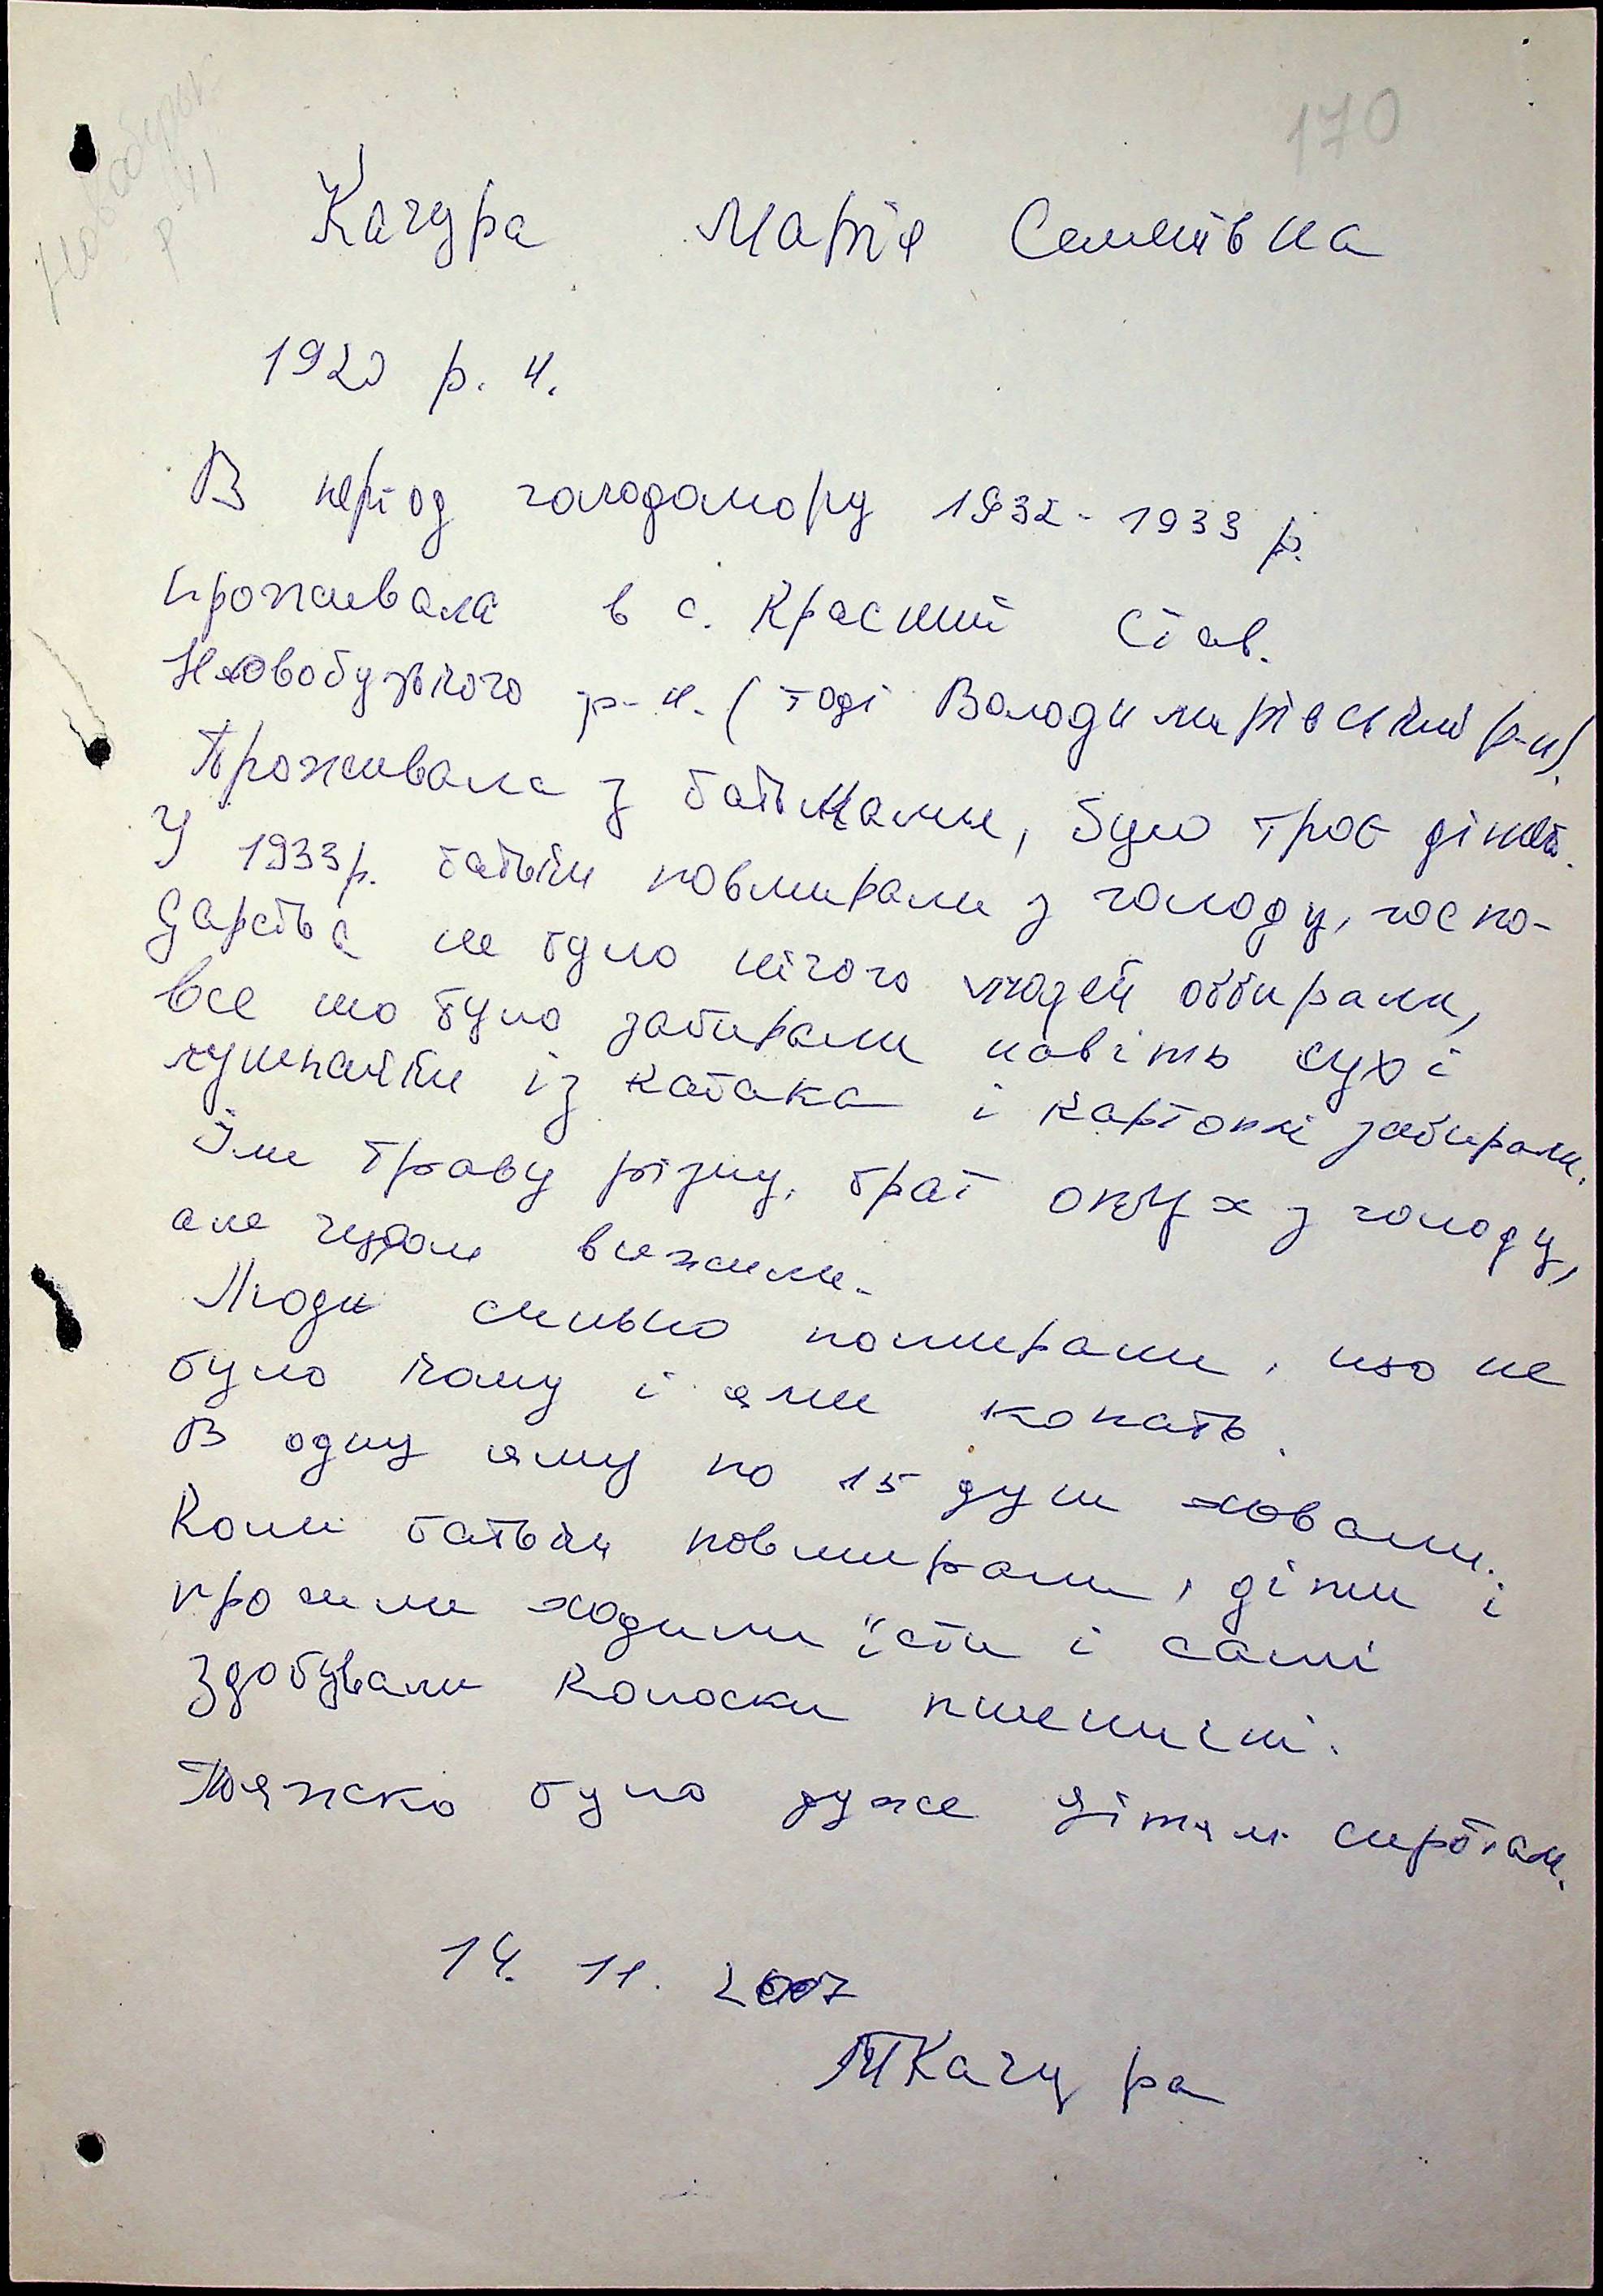 170
Новобузьк.
р-н
Качура Марія Семенівна
1920 р. н.
В період голодомору 1932-1933 р.
проживала в с. Красний Став.
Новобузького р-н. (тоді Володимирівський р-н).
Проживала з батьками, було троє дітей.
У 1933р. батьки повмирали з голоду, госпо-
дарства не було нічого людей оббирали,
все шо було забирали навіть сухі
лушпайки із кабака і картоплі забирали.
Їли траву різну, брат опух з голоду,
але чудом вижили.
Люди сильно помирали, що не
було кому і ями копать.
В одну яму по 15 душ ховали.
Коли батьки повмирали, діти і
просили ходили їсти і самі
здобували колоски пшениці.
Тяжко було дуже дітям сиротам.
14. 11. 2007
МКачура